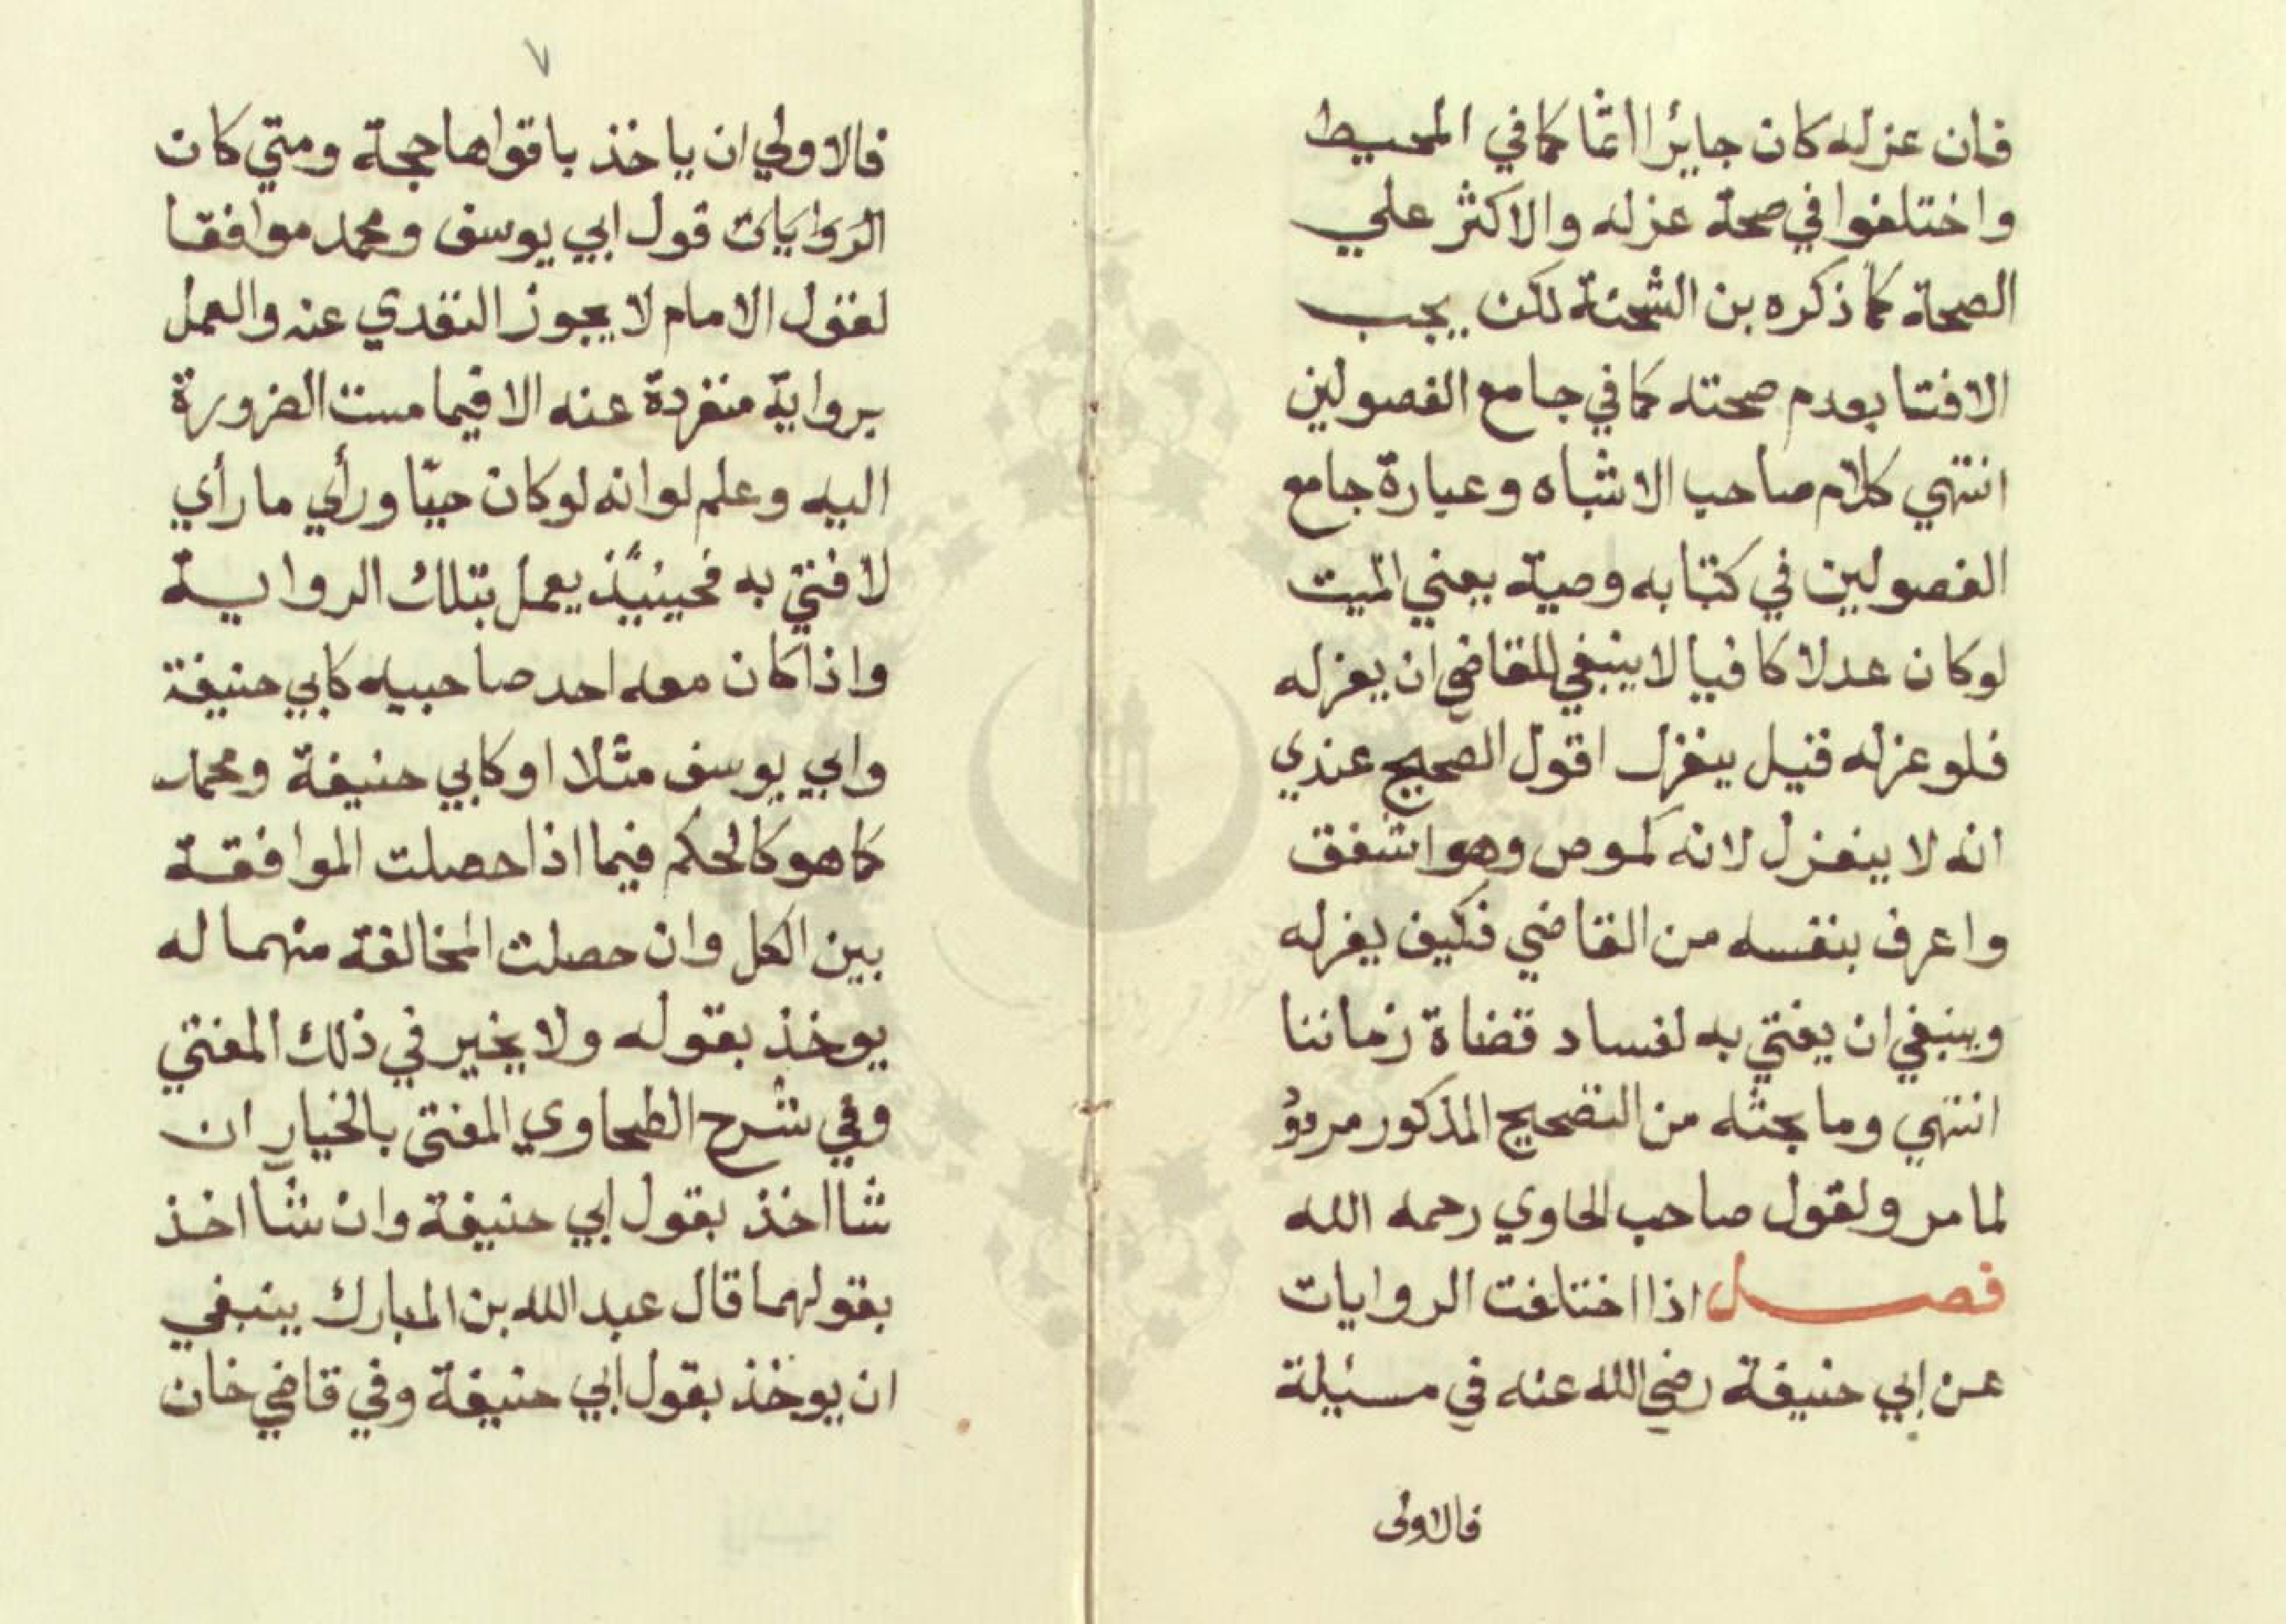 فان عزله كان جايرا اثما كما في المحيط
واختلفوا في صحة عزله والاكثر علي
الصحة كما ذكره بن الشحنة لكن يجب
الافتا بعدم صحته كما في جامع الفصولين
انتهي كلام صاحب الاشباه وعبارة جامع
الفصولين في كتابه وصية يعني الميت
لو كان عدلا كافيا لا ينبغي للقاضي ان يعزله
فلو عزله قيل ينعزل اقول الصحيح عندي
انه لا ينعزل لانه كموص وهو اشفق
واعرف بنفسه من القاضي فكيف يعزله
وينبغي ان يفتي به لفساد قضاة زماننا
انتهي وما بحثه من التصحيح المذكور مردود
لما مر ولقول صاحب الحاوي رحمه الله
فصل اذا اختلفت الروايات
عن ابي حنيفة رضي الله عنه في مسئيلة
فالاولى
٧
فالاولي ان ياخذ باقواها حجة ومتي كان
الروايات قول ابي يوسف ومحمد موافقا
لقول الامام لا يجوز التعدي عنه والعمل
برواية منفردة عنه الا فيما مست الضرورة
اليه وعلم لو انه لو كان حيّا ورأي ما رأي
لافتي به فحينيئذ يعمل بتلك الرواية
واذا كان معه احد صاحبيه كابي حنيفة
وابي يوسف مثلا او كابي حنيفة ومحمد
كما هو كالحكم فيما اذا حصلت الموافقة
بين الكل وان حصلت المخالفة منهما له
يوخذ بقوله ولا يخير في ذلك المفتي
وفي شرح الطحاوي المفتي بالخيار ان
شا اخذ بقول ابي حنيفة وان شا اخذ
بقولهما قال عبد الله بن المبارك ينبغي
ان يوخذ بقول ابي حنيفة وفي قاضي خان